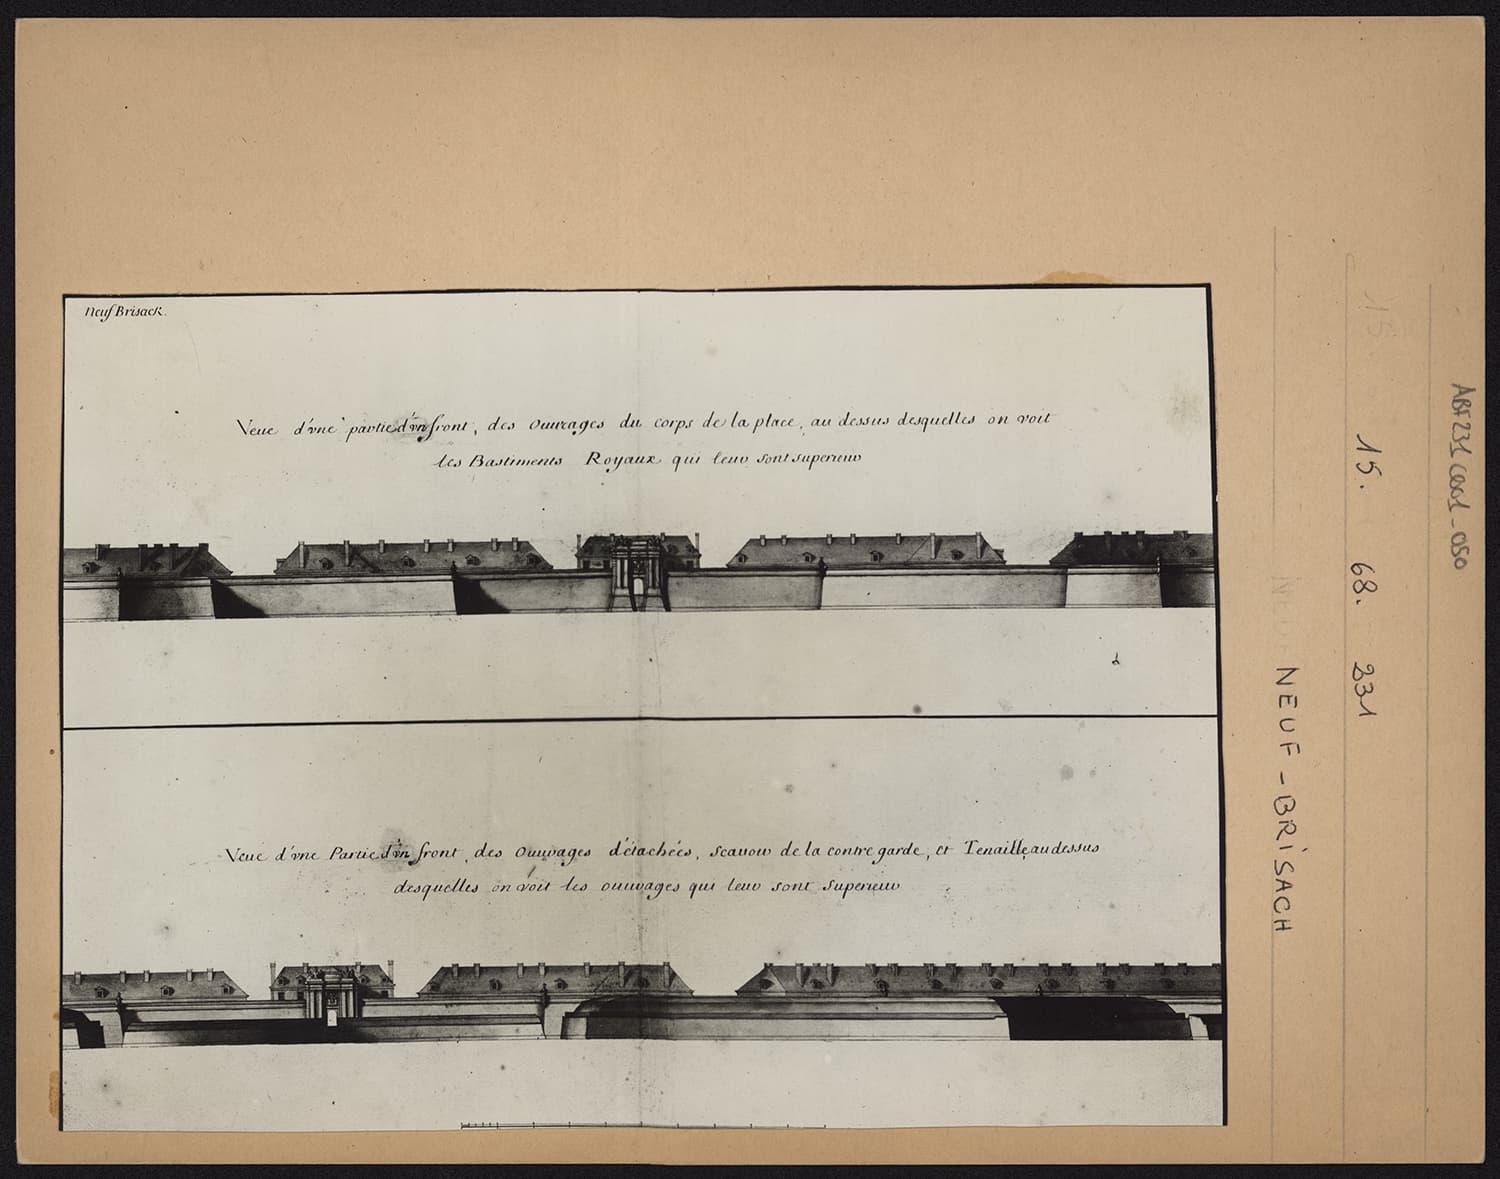 Neuf Brisack.
Veue d'vne partie d'vn front, des ouurages du corps de la place, au dessus desquelles on voit
les Bastiments Royaux qui leur sont superieur
Veue d'vne Partie d'vn front, des Ouurages d'étachées, Scauoir de la contregarde, et Tenaille, au dessus
desquelles on voit les ouurages qui leur sont Superieur
NEUF-BRISACH
15. 68. 231
15
ABF231